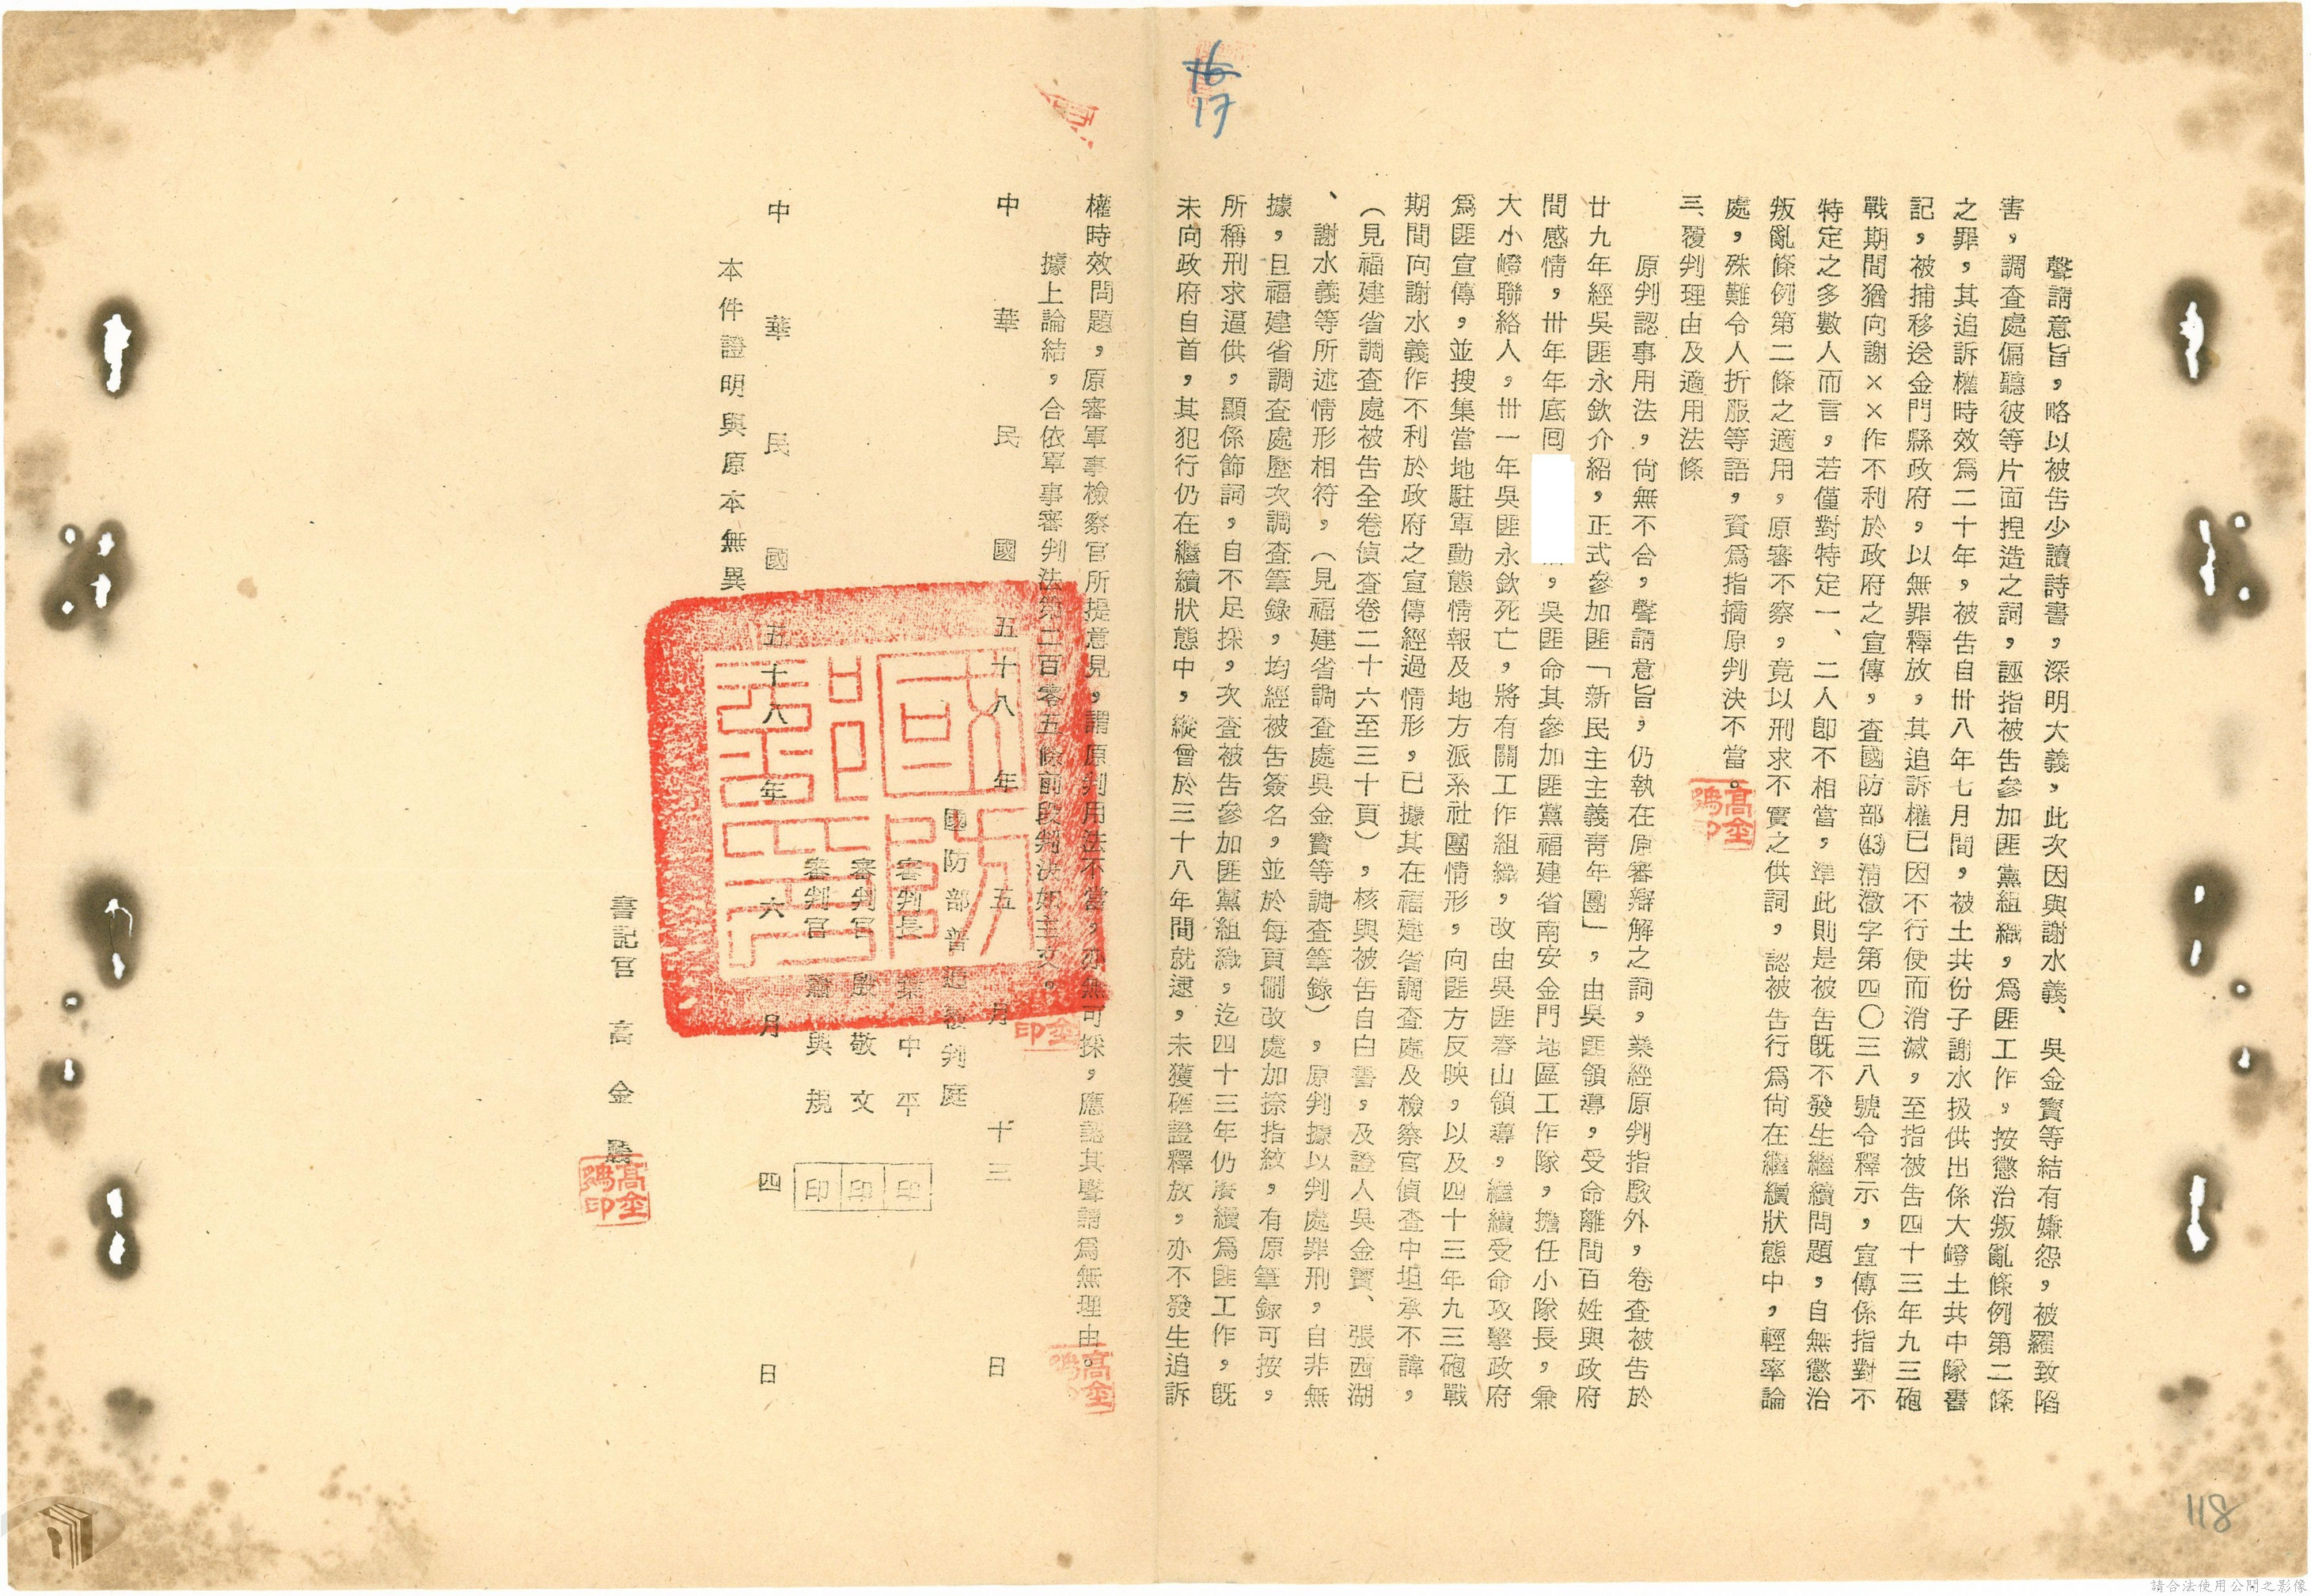 聲請意旨，略以被告少讀詩書，深明大義，此次因與謝水義、吳金寶等結有嫌怨，被羅致陷
害，調查處偏聽彼等片面揑造之詞，誣指被告參加匪黨組織，爲匪工作，按懲治叛亂條例第二條
之罪，其追訴權時效爲二十年，被告自卅八年七月間，被土共份子謝水扱供出係大嶝土共中隊書
記，被捕移送金門縣政府，以無罪釋放，其追訴權已因不行使而消滅，至指被告四十三年九三砲
戰期間猶向謝××作不利於政府之宣傳，查國防部(43)清澈字第四〇三八號令釋示，宣傳係指對不
特定之多數人而言，若僅對特定一、二人卽不相當，準此則是被告旣不發生繼續問題，自無懲治
叛亂條例第二條之適用，原審不察，竟以刑求不實之供詞，認被告行爲尙在繼續狀態中，輕率論
處，殊難令人折服等語，資爲指摘原判決不當。
三、覆判理由及適用法條
原判認事用法，尙無不合，聲請意旨，仍執在原審辯解之詞，業經原判指駁外，卷查被告於
廿九年經吳匪永欽介紹，正式參加匪「新民主主義靑年團」，由吳匪領導，受命離間百姓與政府
間感情，卅年年底囘，吳匪命其參加匪黨福建省南安金門地區工作隊，擔任小隊長，兼
大小嶝聯絡人，卅一年吳匪永欽死亡，將有關工作組織，改由吳匪春山領導，繼續受命攻擊政府
爲匪宣傳，並搜集當地駐軍動態情報及地方派系社團情形，向匪方反映，以及四十三年九三砲戰
期間向謝水義作不利於政府之宣傳經過情形，已據其在福建省調查處及檢察官偵查中坦承不諱，
（見福建省調查處被告全卷偵查卷二十六至三十頁），核與被告自白書，及證人吳金寶、張西湖
、謝水義等所述情形相符，（見福建省調查處吳金寶等調查筆錄），原判據以判處罪刑，自非無
據，且福建省調查處歷次調查筆錄，均經被告簽名，並於每頁刪改處加捺指紋，有原筆錄可按，
所稱刑求逼供，顯係飾詞，自不足採，次查被告參加匪黨組織，迄四十三年仍賡續爲匪工作，旣
未向政府自首，其犯行仍在繼續狀態中，縱曾於三十八年間就逮，未獲確證釋放，亦不發生追訴
權時效問題，原審軍事檢察官所提意見，謂原判用法不當，亦無可採，應認其聲請爲無理由。
據上論結，合依軍事審判法第二百零五條前段判決如主文。
中華民國五十八年五月十三日
國防部普通覆判庭
審判長 葉中平 印
審判官 殷敬文 印
審判官 蕭與規 印
中華民國五十八年六月四日
本件證明與原本無異
書記官 高金
16
17
118
請合法使用公開之影像